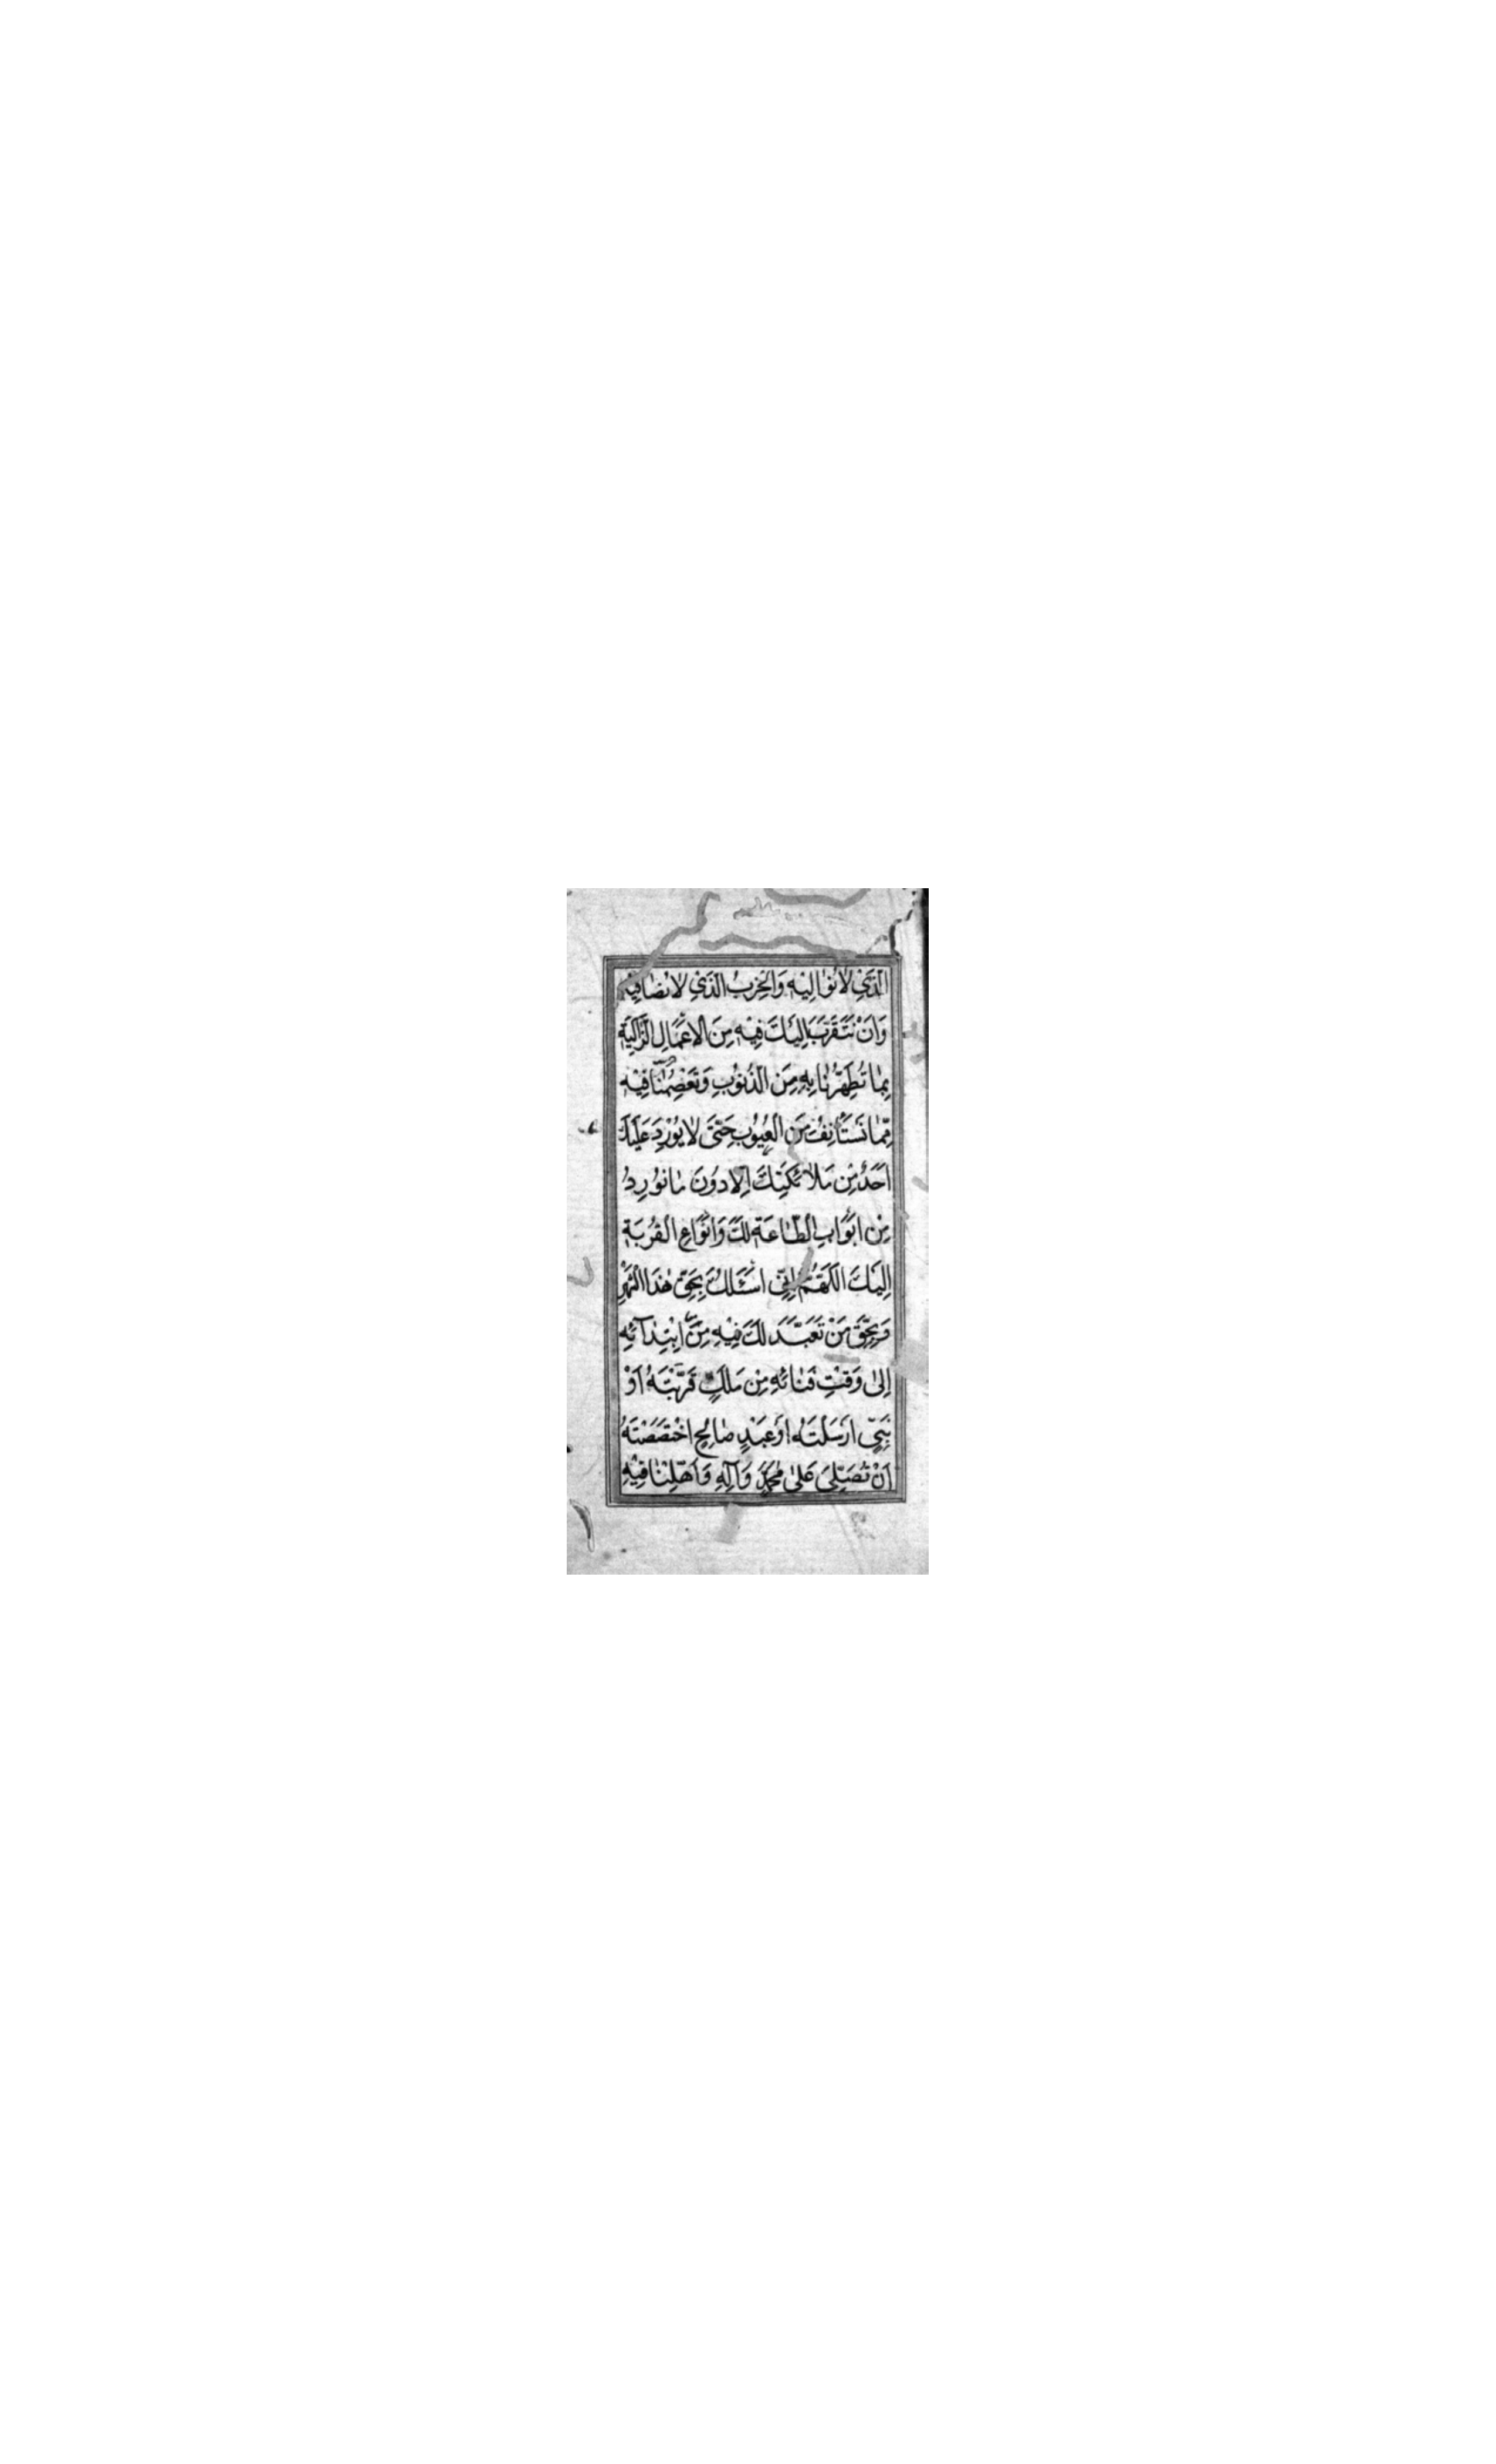 الَّذِي لَا نُوَالِيهِ وَالْحِزْبُ الَّذِي لَا نُصَافِيهِ
وَأَنْ نَتَقَرَّبَ إِلَيْكَ فِيهِ مِنَ الْأَعْمَالِ الزَّاكِيَةِ
بِمَا تُطَهِّرُنَا بِهِ مِنَ الذُّنُوبِ وَتَعْصِمُنَا فِيهِ
مِمَّا نَسْتَأْنِفُ مِنَ الْعُيُوبِ حَتَّى لَا يُورِدَ عَلَيْكَ
أَحَدٌ مِنْ مَلَائِكَتِكَ إِلَّا دُونَ مَا نُورِدُ
مِنْ أَبْوَابِ الطَّاعَةِ لَكَ وَأَنْوَاعِ الْقُرْبَةِ
إِلَيْكَ اللَّهُمَّ إِنِّي أَسْئَلُكَ بِحَقِّ هٰذَا الشَّهْرِ
وَبِحَقِّ مَنْ تَعَبَّدَ لَكَ فِيهِ مِنَ ابْتِدَآئِهِ
إِلَى وَقْتِ فَنَائِهِ مِنْ مَلَكٍ قَرَّبْتَهُ أَوْ
نَبِيٍّ أَرْسَلْتَهُ أَوْ عَبْدٍ صَالِحٍ اخْتَصَصْتَهُ
أَنْ تُصَلِّيَ عَلَى مُحَمَّدٍ وَآلِهِ وَأَهِّلْنَا فِيهِ